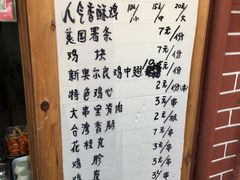 人气香酥鸡 10元/小 15元/中 20元/大
美国薯条 7元/份
鸡块 7元/份
新奥尔良鸡中翅 /份
特色鸡心 2元/串
大串里脊肉 2元/串
台湾香肠 7元/串
花枝丸 3元/串
鸡胗 3元/串